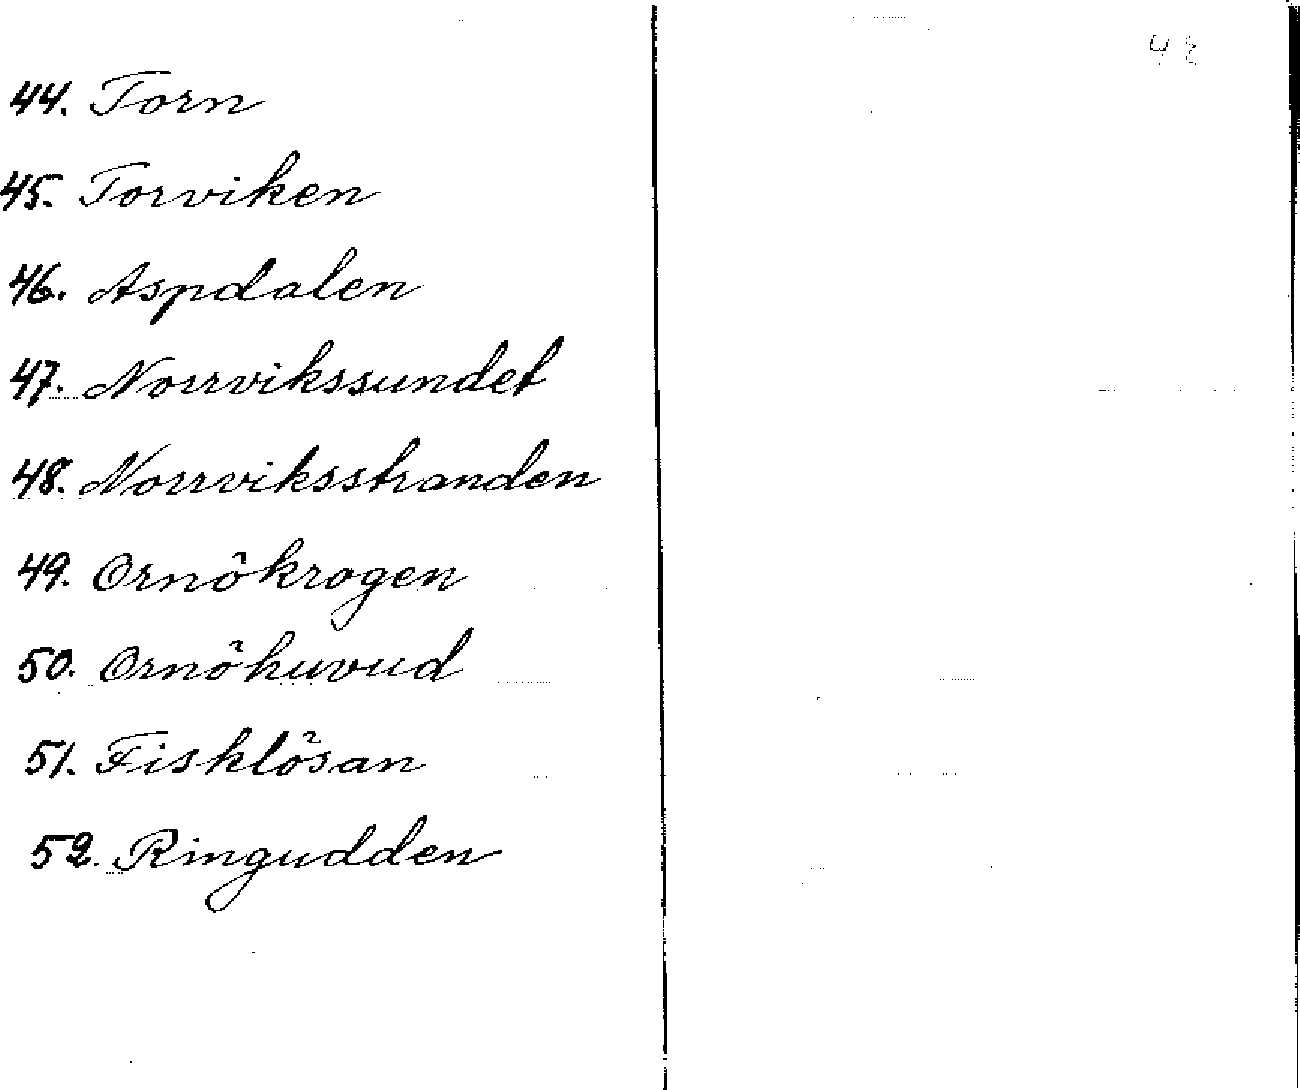 44. Torn
45. Torviken
46. Aspdalen
47. Norrvikssundet
48. Norrviksstranden
49. Ornökrogen
50. Ornöhuvud
51. Fisklösan
52. Ringudden
48